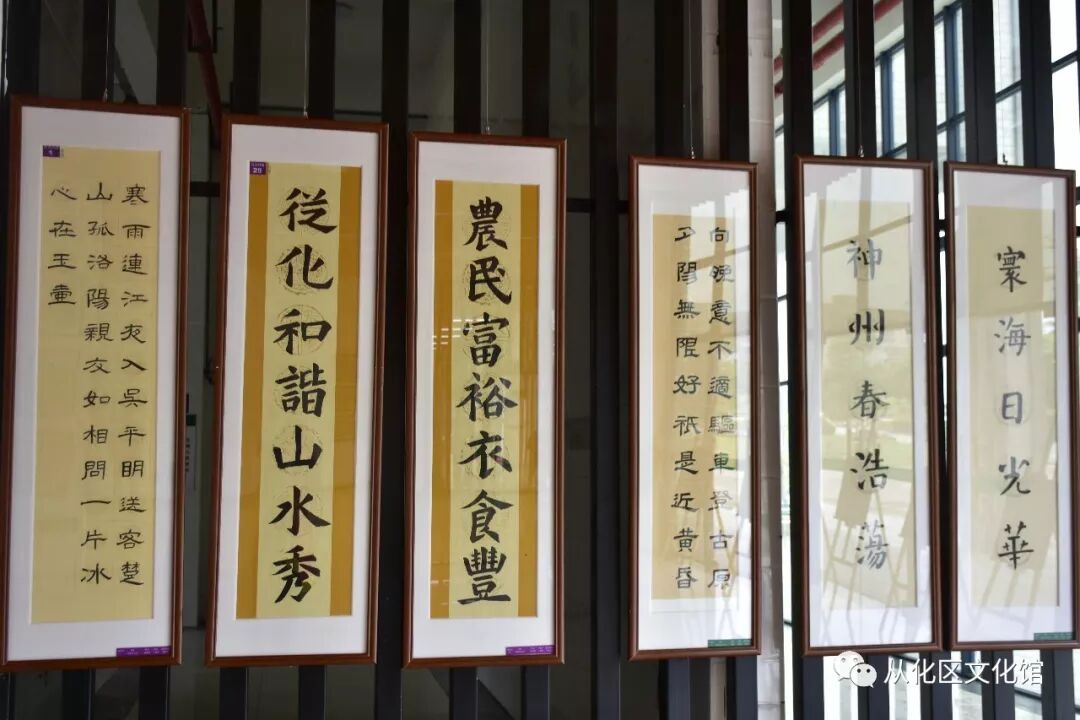 寒雨連江夜入吳平明送客楚
山孤洛陽親友如相問一片冰
心在玉壺
29
從化和諧山水秀
農民富裕衣食豐
向晚意不適驅車登古原
夕陽無限好祇是近黄昏
神州春浩蕩
寰海日光華
从化区文化馆